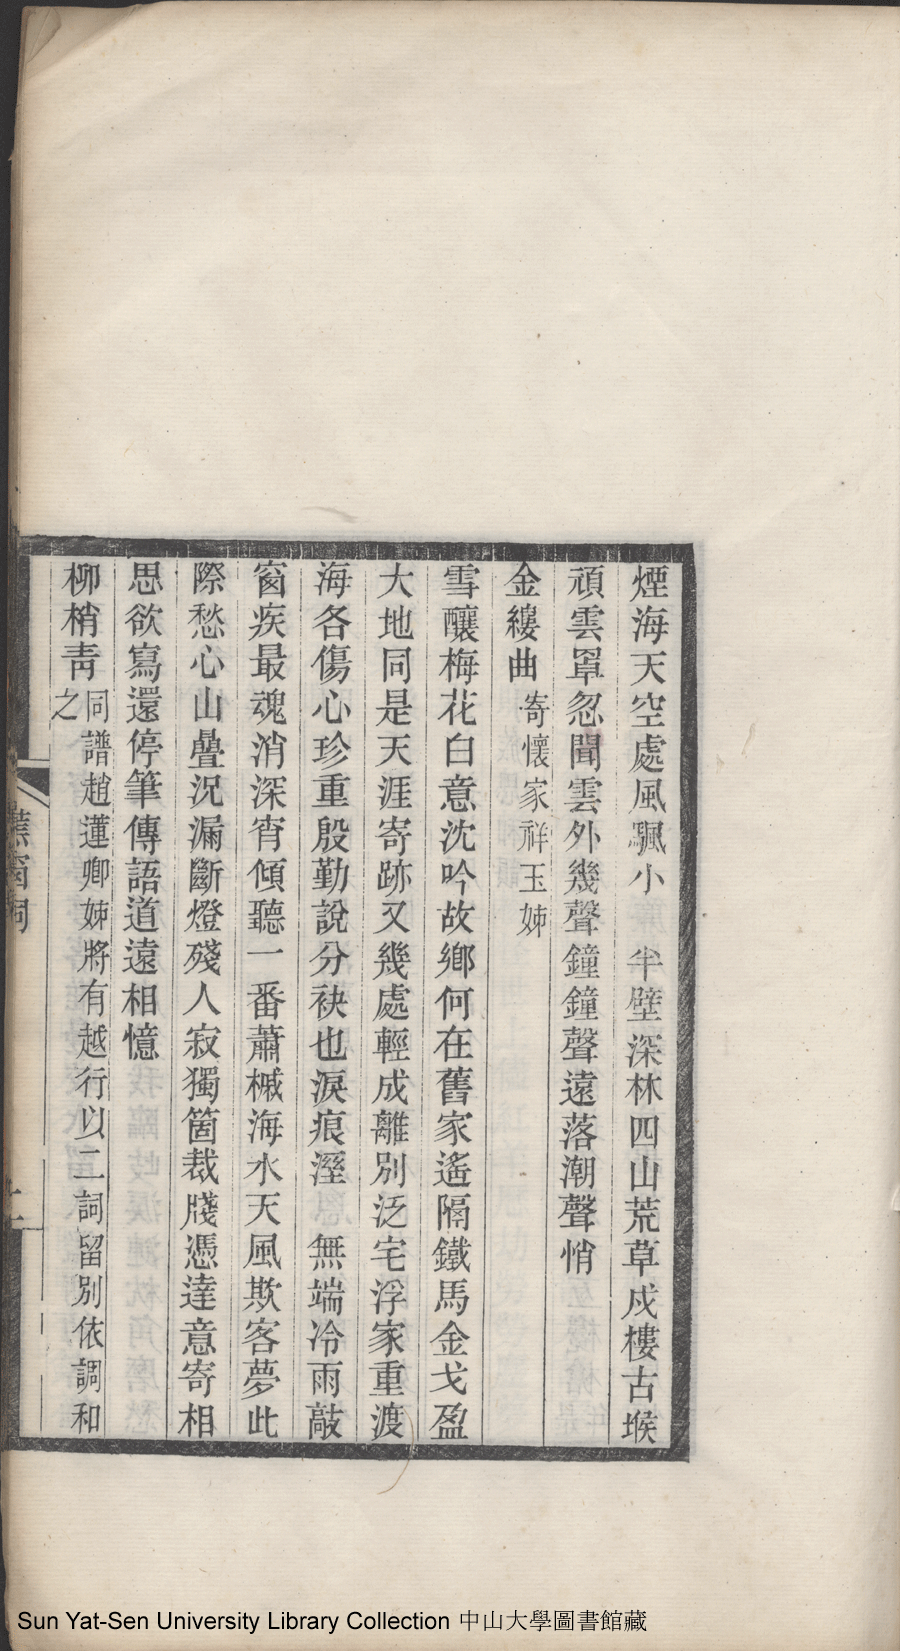 煙海天空處風颿小　半壁深林四山荒草戍樓古堠
頑雲罩忽聞雲外幾聲鐘鐘聲遠落潮聲悄
金縷曲 寄懷家祥玉姊
雪釀梅花白意沈吟故鄉何在舊家遙隔鐵馬金戈盈
大地同是天涯寄跡又幾處輕成離別泛宅浮家重渡
海各傷心珍重殷勤說分袂也淚痕溼　無端冷雨敲
窗疾最魂消深宵傾聽一番蕭槭海水天風欺客夢此
際愁心山疊況漏斷燈殘人寂獨箇裁牋憑達意寄相
思欲寫還停筆傳語道遠相憶
柳梢青 同譜趙蓮卿姊將有越行以二詞留別依調和
之
蕉窗詞
Sun Yat-Sen University Library Collection 中山大學圖書館藏